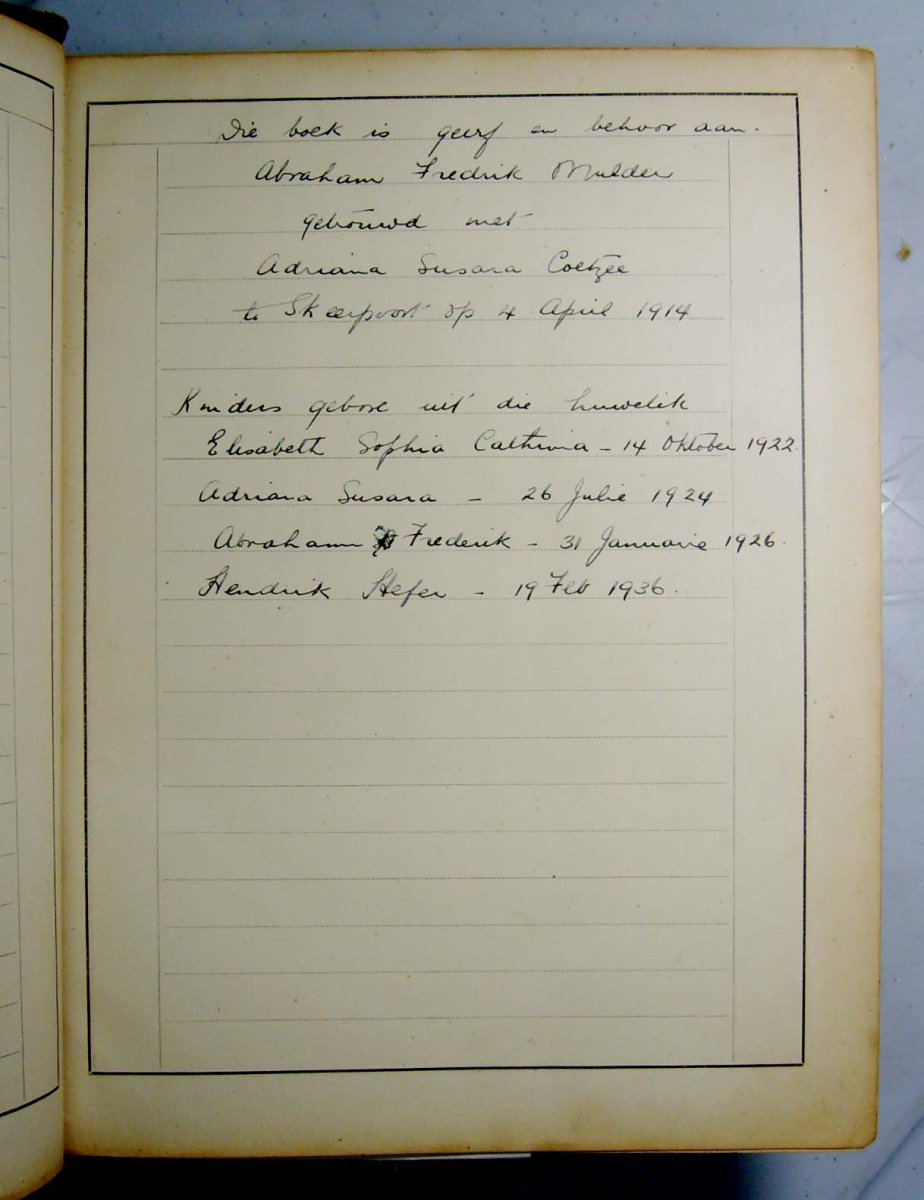 Die boek is geerf en behoor aan.
Abraham Fredrik Mulder
getrouwd met
Adriana Susara Coetzee
te Skeerpoort op 4 April 1914
Kinders gebore uit die huwelik
Elisabeth Sophia Cathrina - 14 Oktober 1922.
Adriana Susara - 26 Julie 1924
Abraham Frederik - 31 Januarie 1926.
Hendrik Stefer - 19 Feb 1936.